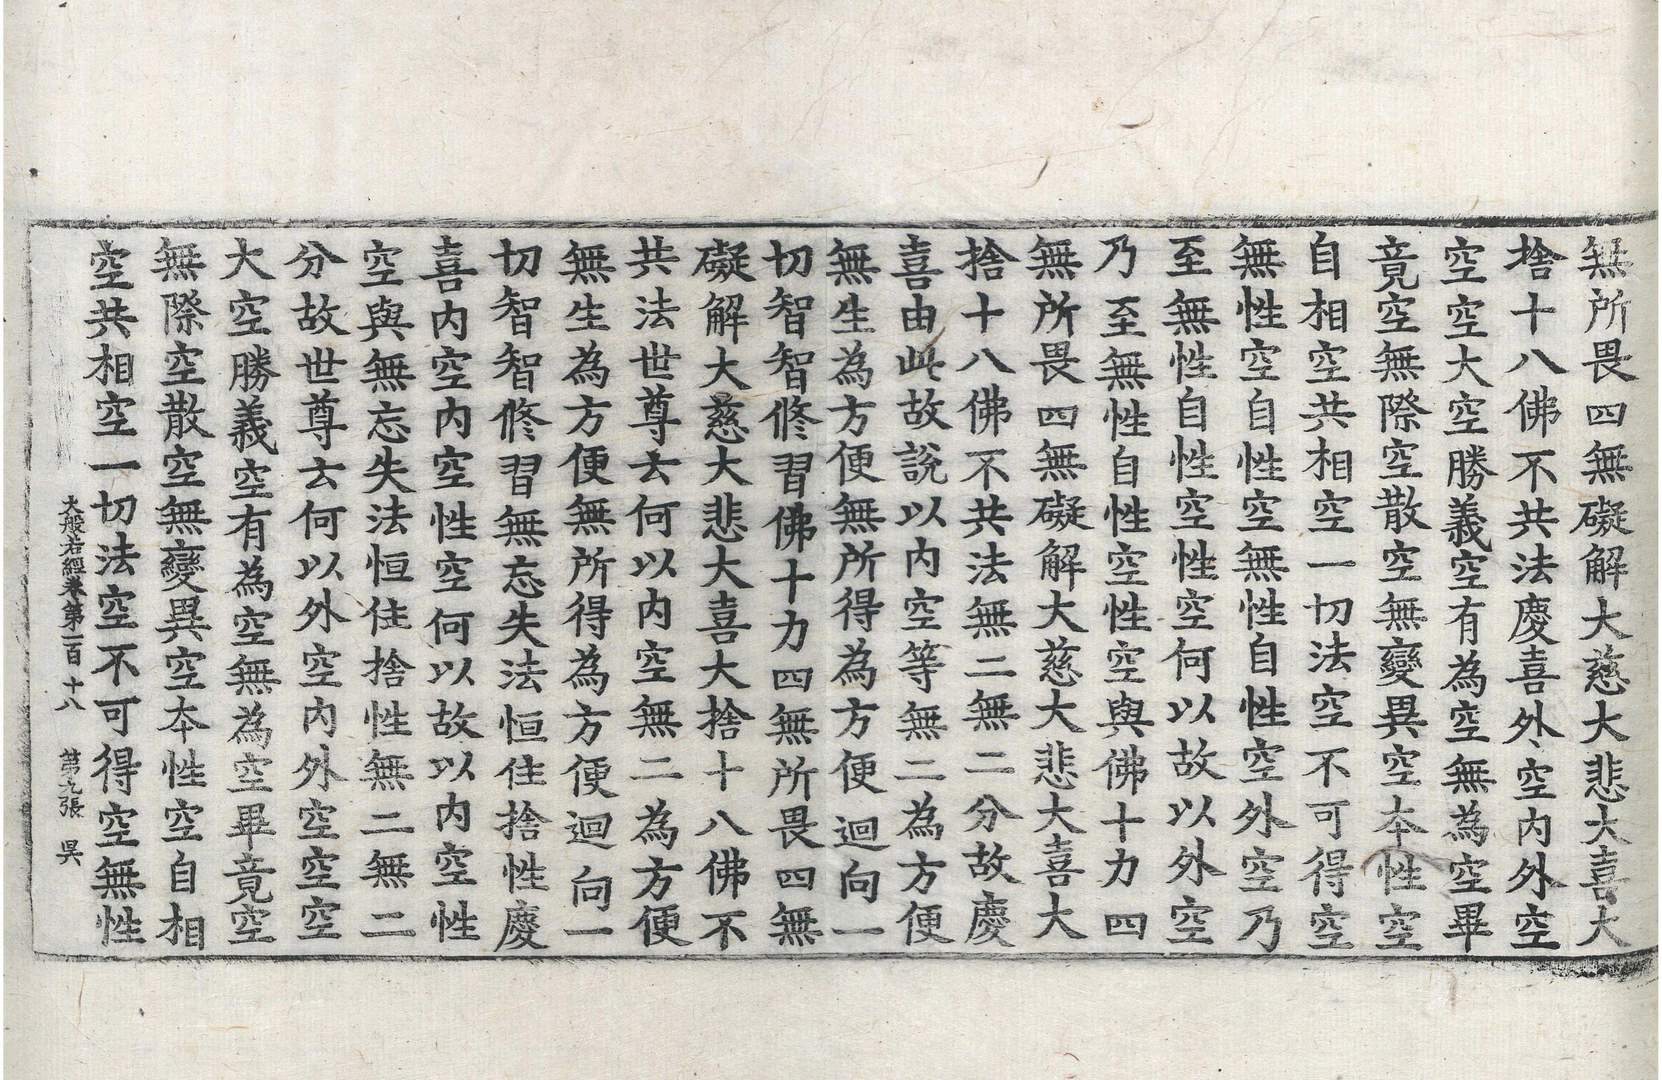 無所畏四無礙解大慈大悲大喜大
捨十八佛不共法慶喜外空內外空
空空大空勝義空有為空無為空畢
竟空無際空散空無變異空本性空
自相空共相空一切法空不可得空
無性空自性空無性自性空外空乃
至無性自性空性空何以故以外空
乃至無性自性空性空與佛十力四
無所畏四無礙解大慈大悲大喜大
捨十八佛不共法無二無二分故慶
喜由此故說以內空等無二為方便
無生為方便無所得為方便迴向一
切智智修習佛十力四無所畏四無
礙解大慈大悲大喜大捨十八佛不
共法世尊云何以內空無二為方便
無生為方便無所得為方便迴向一
切智智修習無忘失法恒住捨性慶
喜內空內空性空何以故以內空性
空與無忘失法恒住捨性無二無二
分故世尊云何以外空內外空空空
大空勝義空有為空無為空畢竟空
無際空散空無變異空本性空自相
空共相空一切法空不可得空無性
大般若經卷第一百十八 第九張 昊